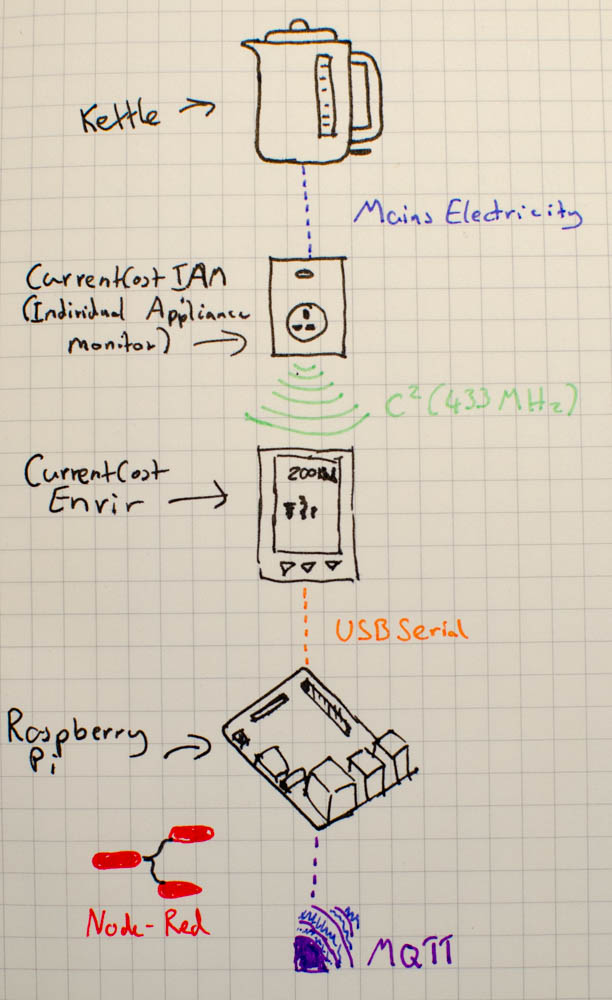 Kettle
Mains Electricity
CurrentCost IAM
(Individual Appliance
monitor)
C² (433 MHz)
CurrentCost
Envir
USB Serial
Raspberry
Pi
Node-Red
MQTT